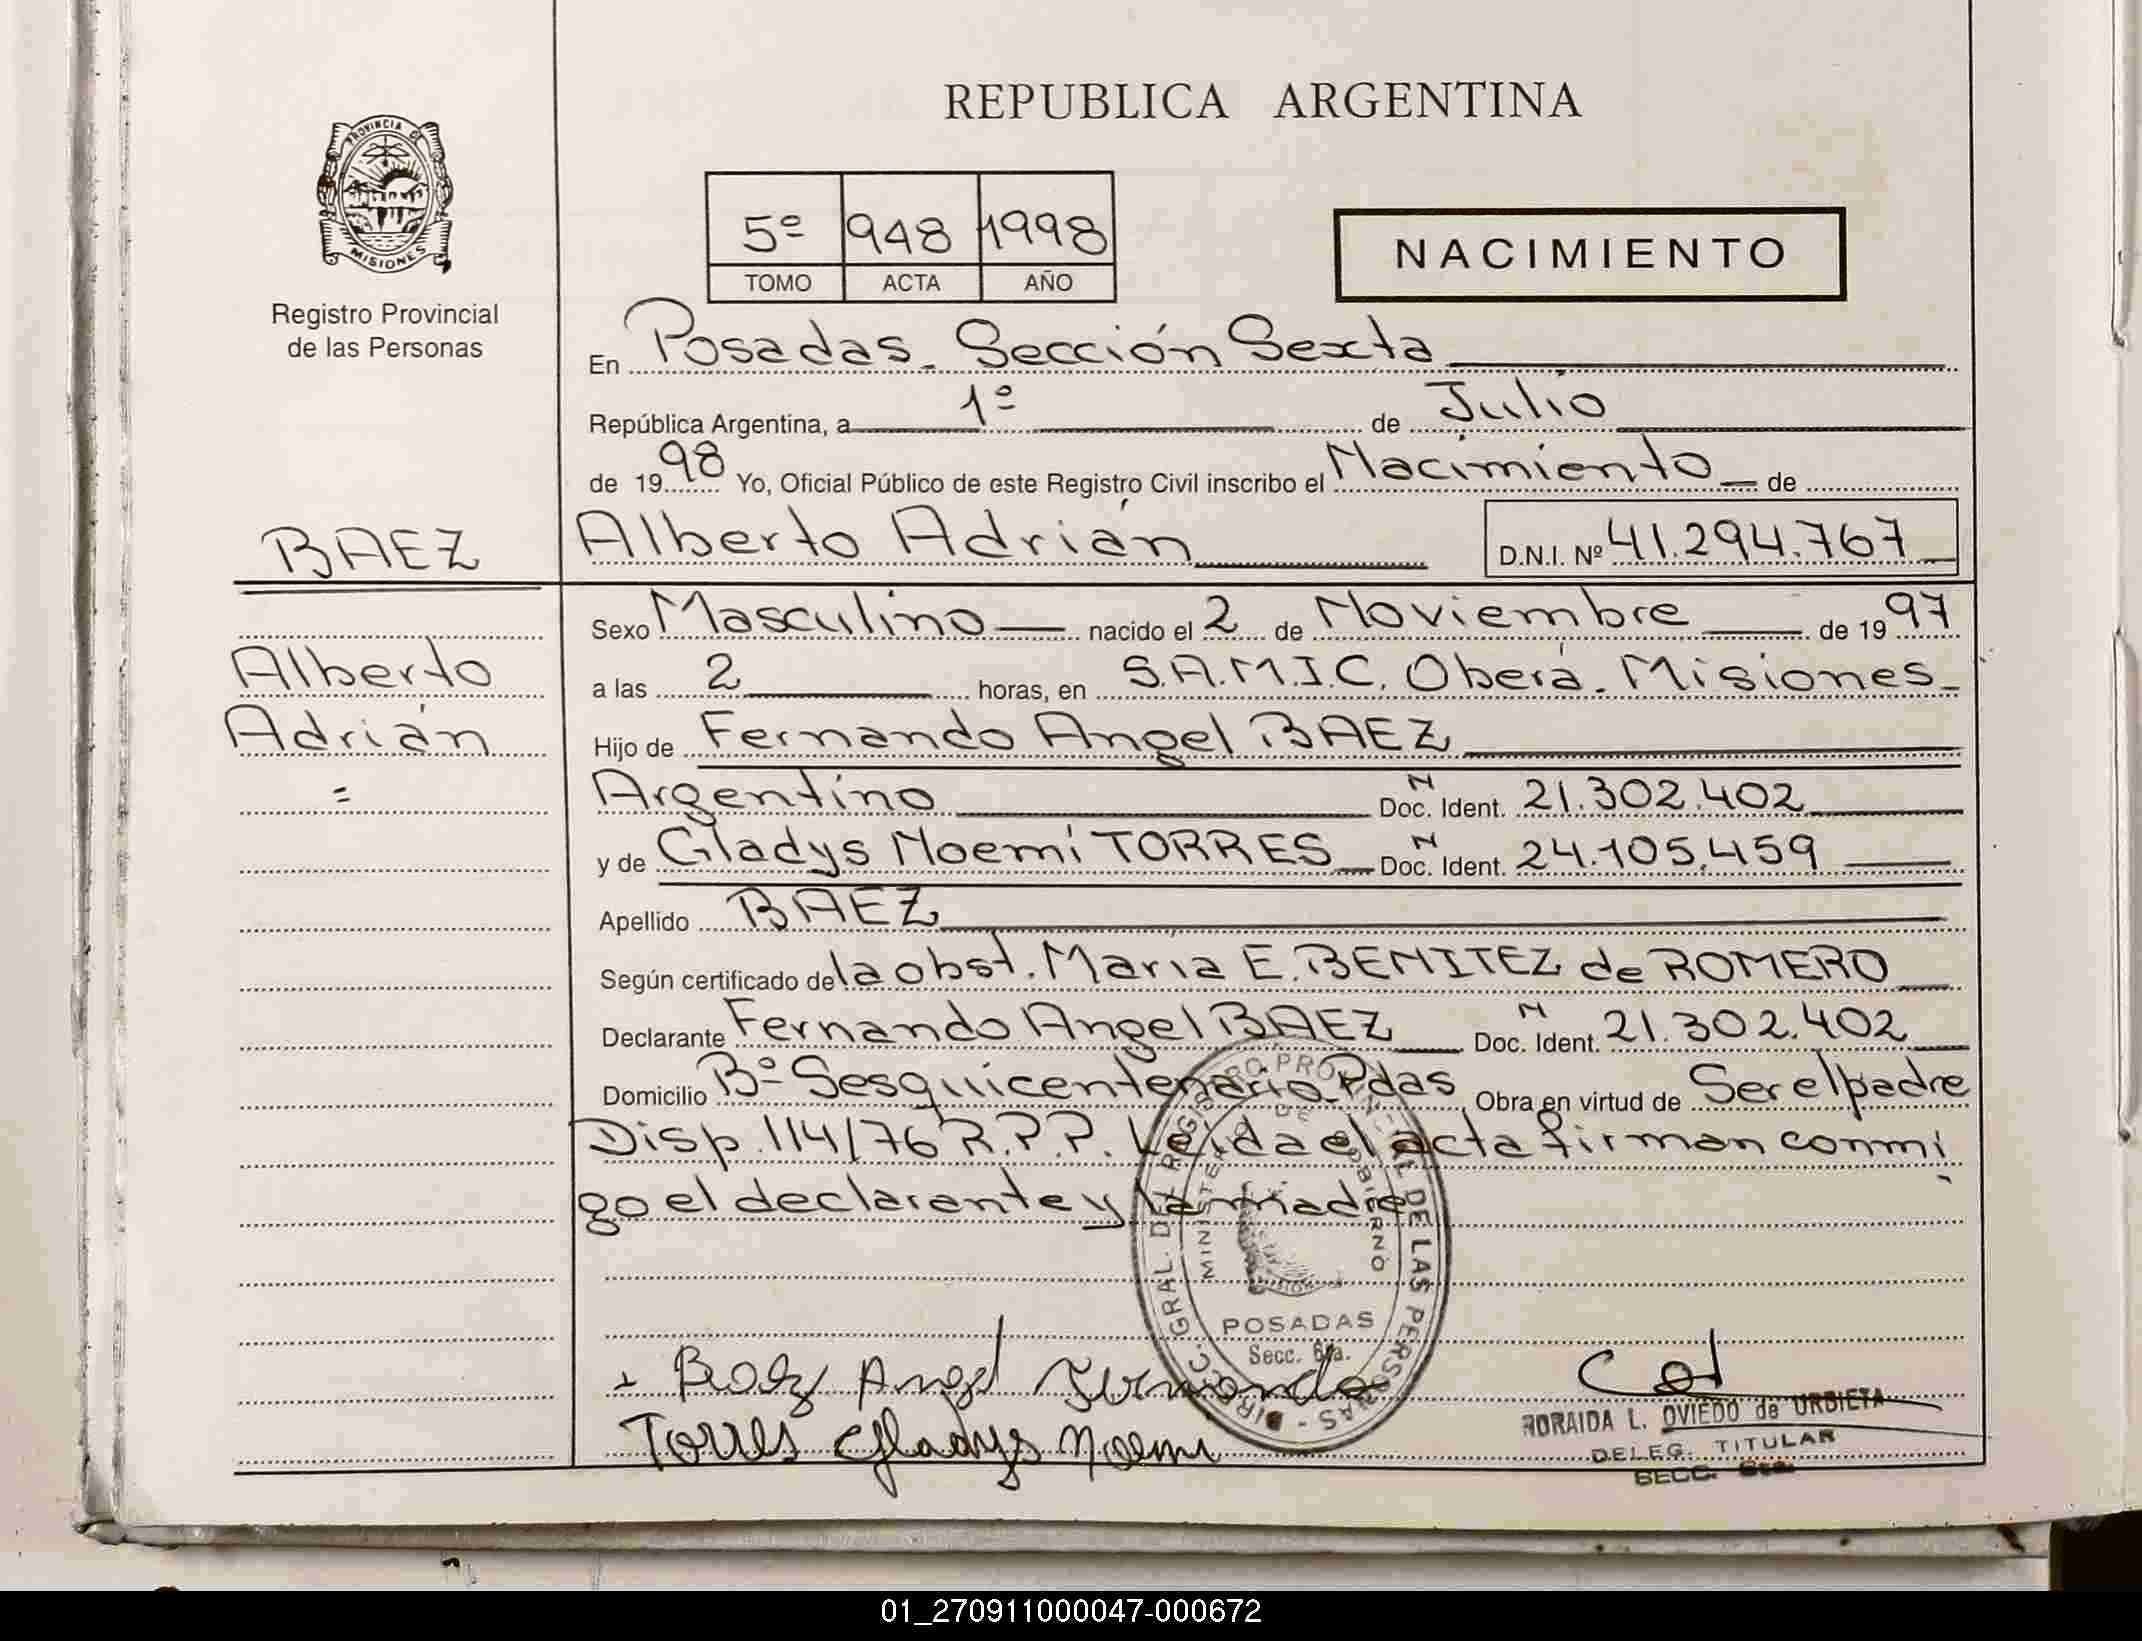 REPUBLICA ARGENTINA
PROVINCIA DE
MISIONES
Registro Provincial
de las Personas
5º 948 1998
TOMO ACTA AÑO
NACIMIENTO
En Posadas - Sección Sexta
República Argentina, a 1º de Julio
de 1998 Yo, Oficial Público de este Registro Civil inscribo el Nacimiento de
BAEZ
Alberto Adrián D.N.I. Nº 41.294.767
Sexo Masculino nacido el 2 de Noviembre de 1997
Alberto
a las 2 horas, en S.A.M.I.C. Oberá. Misiones
Adrián
Hijo de Fernando Angel BAEZ
=
Argentino N Doc. Ident. 21.302.402
y de Gladys Noemí TORRES N Doc. Ident. 24.105.459
Apellido BAEZ
Según certificado de la obst. María E. BENITEZ de ROMERO
Declarante Fernando Angel BAEZ N Doc. Ident. 21.302.402
Domicilio Bº Sesquicentenario Pdas Obra en virtud de Ser el padre
Disp. 114/76 R.P.P. Leída el acta firman conmi
go el declarante y la madre
DIREC. GRAL. DEL REGISTRO PROVINCIAL DE LAS PERSONAS -
MINISTERIO DE GOBIERNO
POSADAS
Secc. 6ta.
Baez Angel Fernando
Torres Gladys Noemi
ZORAIDA L. OVIEDO de URBIETA
DELEG. TITULAR
SECC. 6ta.
01_270911000047-000672